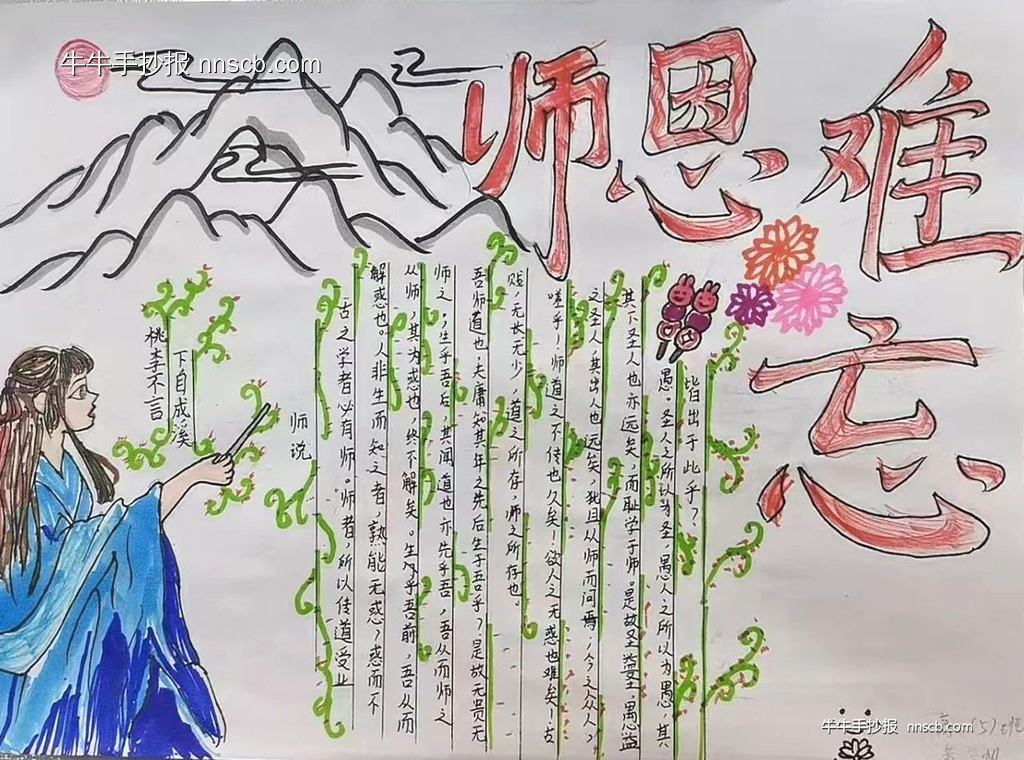 牛牛手抄报 nnscb.com
师恩难忘
桃李不言
下自成溪
师说
古之学者必有师。师者，所以传道受业
解惑也。人非生而知之者，熟能无惑？惑而不
从师，其为惑也，终不解矣。生乎吾前，吾从而
师之；生乎吾后，其闻道也亦先乎吾，吾从而师之
吾师道也，夫庸知其年之先后生于吾乎？是故无贵无
贱，无长无少，道之所存，师之所存也。
嗟乎！师道之不传也久矣！欲人之无惑也难矣！古
之圣人，其出人也远矣，犹且从师而问焉，今之众人，
其下圣人也亦远矣，而耻学于师。是故圣益圣，愚益
愚。圣人之所以为圣，愚人之所以为愚，其
皆出于此乎？
(5)班
牛牛手抄报 nnscb.com